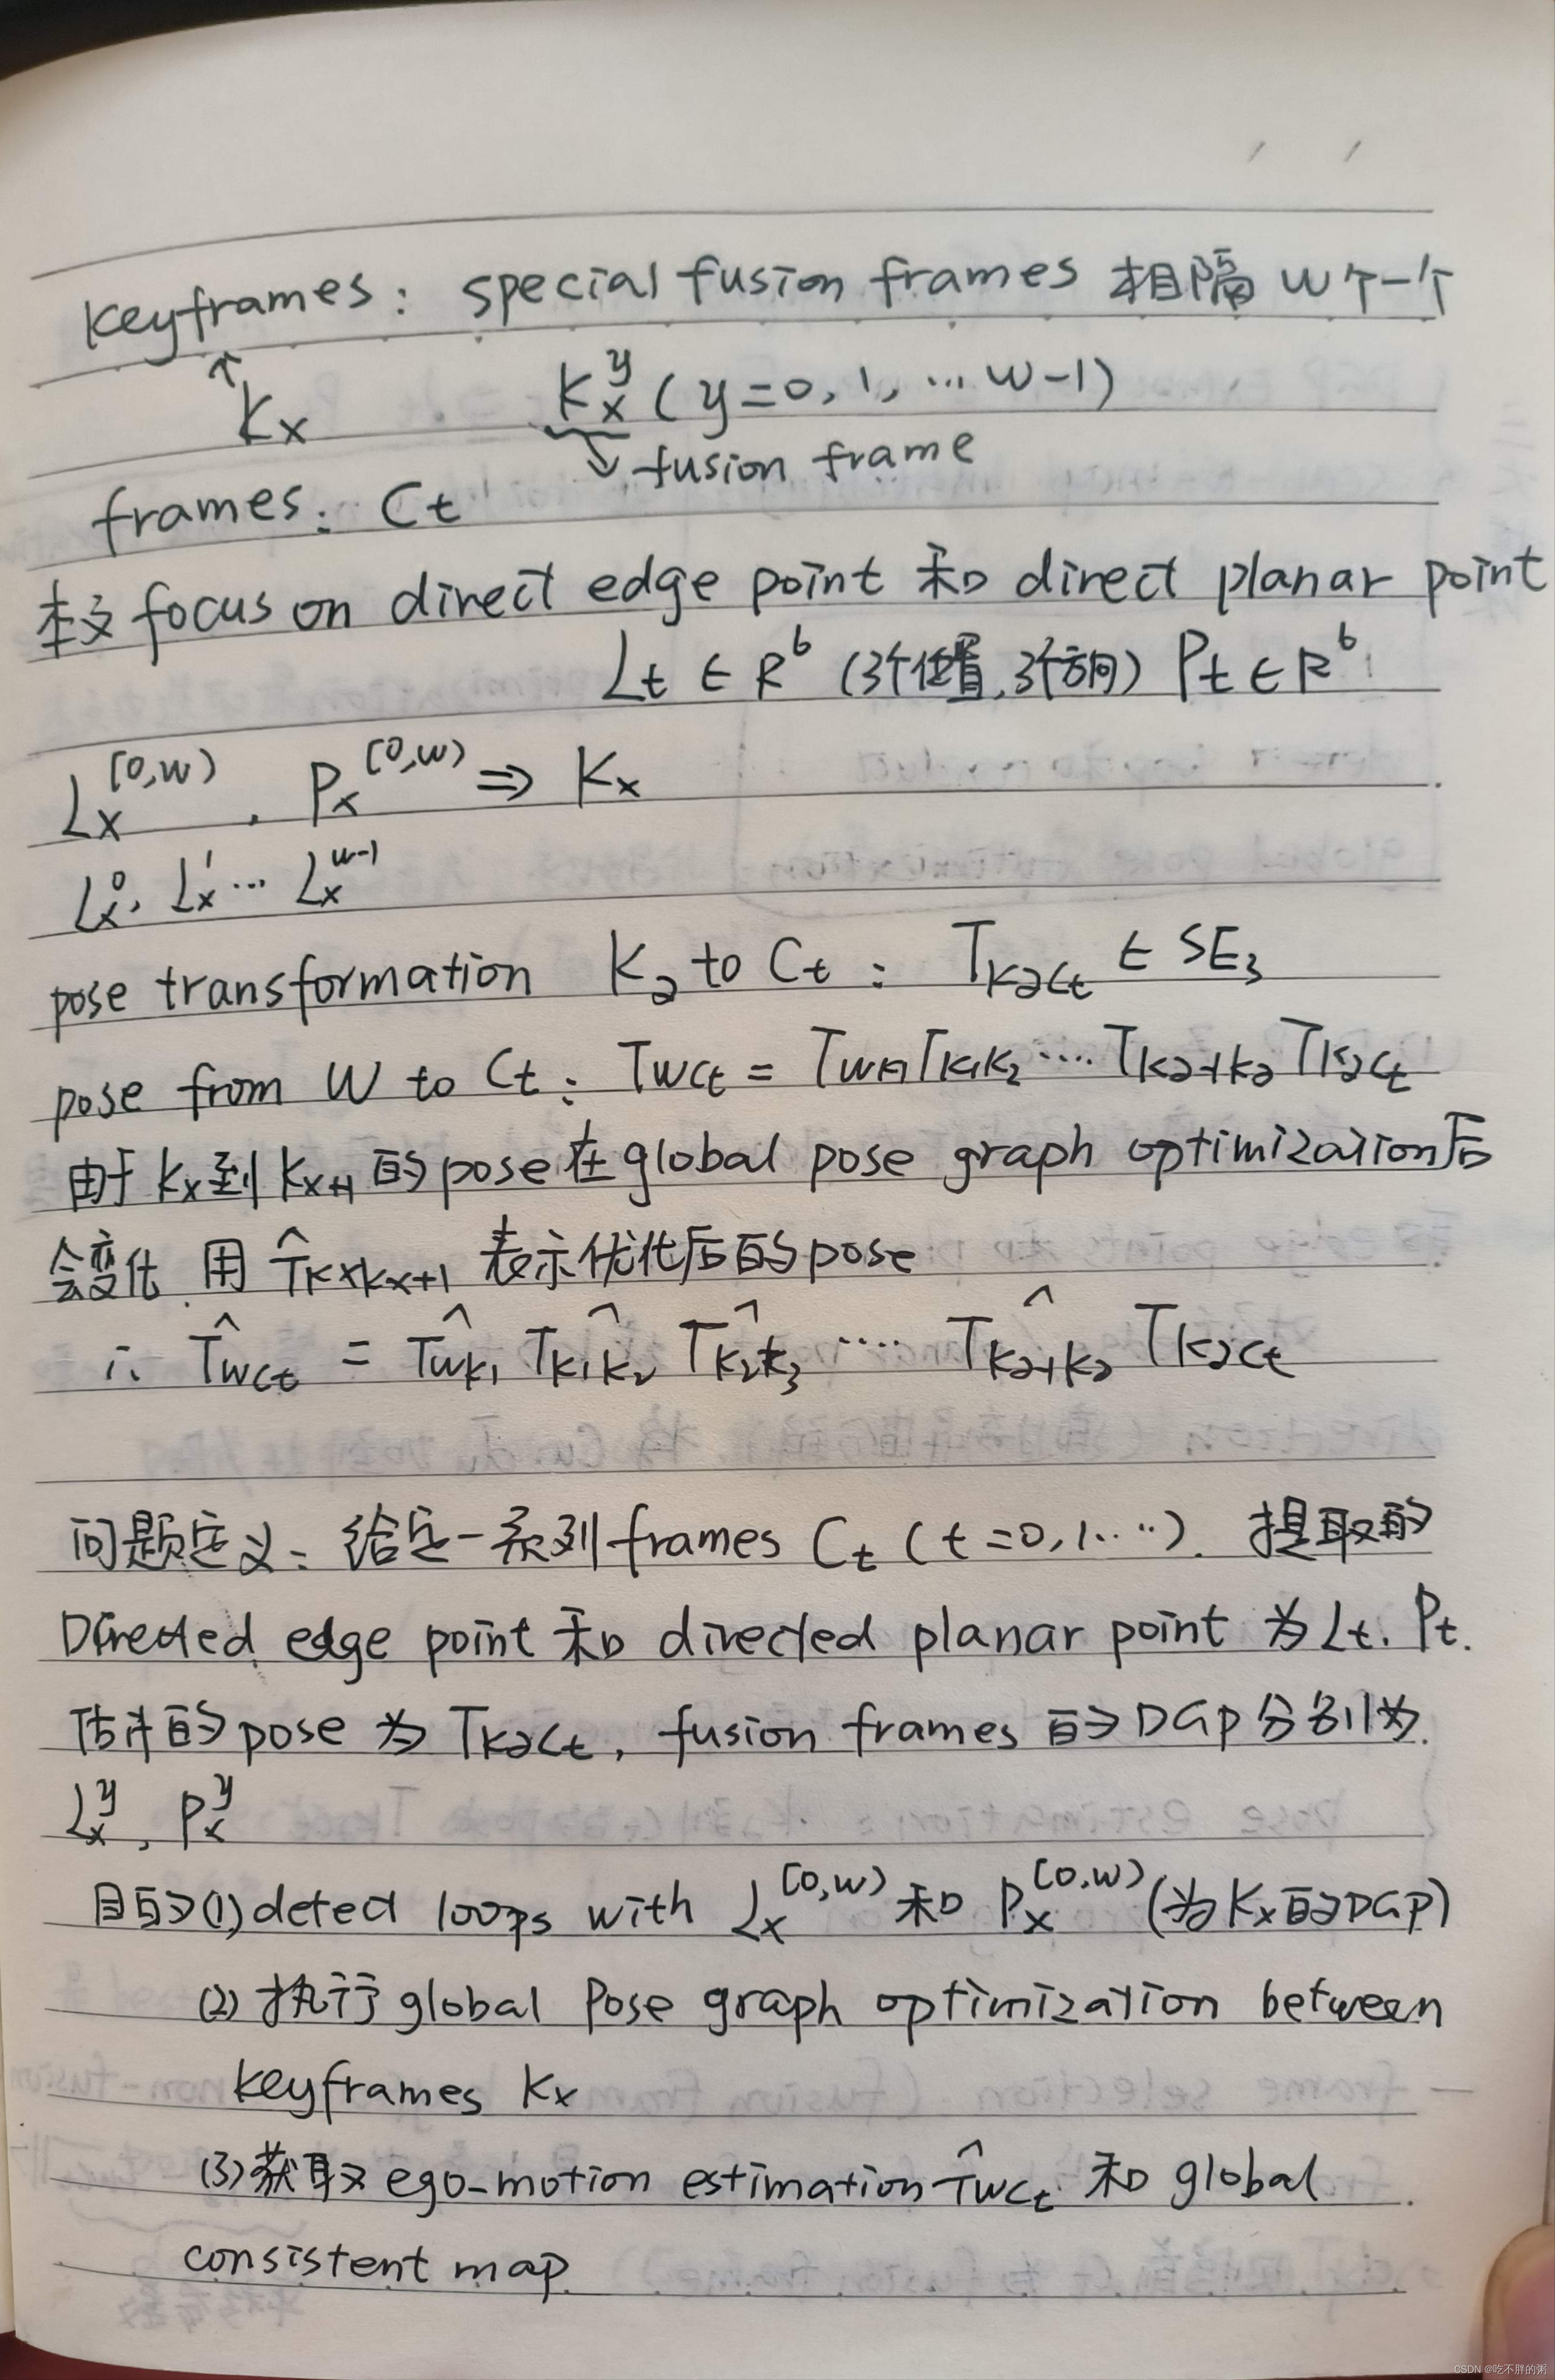 keyframes: special fusion frames 相隔 w个一个
↑
Kx Kx^y (y=0, 1, ... w-1)
↳ fusion frame
frames: Ct
本文 focus on direct edge point 和 direct planar point
Lt ∈ R^6 (3个位置, 3个方向) Pt ∈ R^6
Lx^[0,w) . Px^[0,w) ⇒ Kx
Lx^0, Lx^1 ... Lx^w-1
pose transformation K2 to Ct : TK2Ct ∈ SE3
pose from W to Ct : TWCt = TWK1 TK1K2 .... TK2-1K2 TK2Ct
由于 Kx到 Kx+1 的pose在global pose graph optimization后
会变化. 用 T̂KxKx+1 表示优化后的pose
∴ T̂WCt = T̂WK1 T̂K1K2 T̂K2K3 .... T̂K2-1K2 TK2Ct
问题定义: 给定一系列frames Ct (t=0,1....). 提取的
Directed edge point 和 directed planar point 为Lt. Pt.
估计的pose 为 TK2Ct, fusion frames 的DGP分别为.
Lx^y, Px^y
目的(1)detect loops with Lx^[0,w) 和 Px^[0,w) (为Kx的DGP)
(2) 执行global Pose graph optimization between
keyframes Kx
(3)获取 ego-motion estimation T̂WCt 和 global
consistent map
CSDN @吃不胖的粥